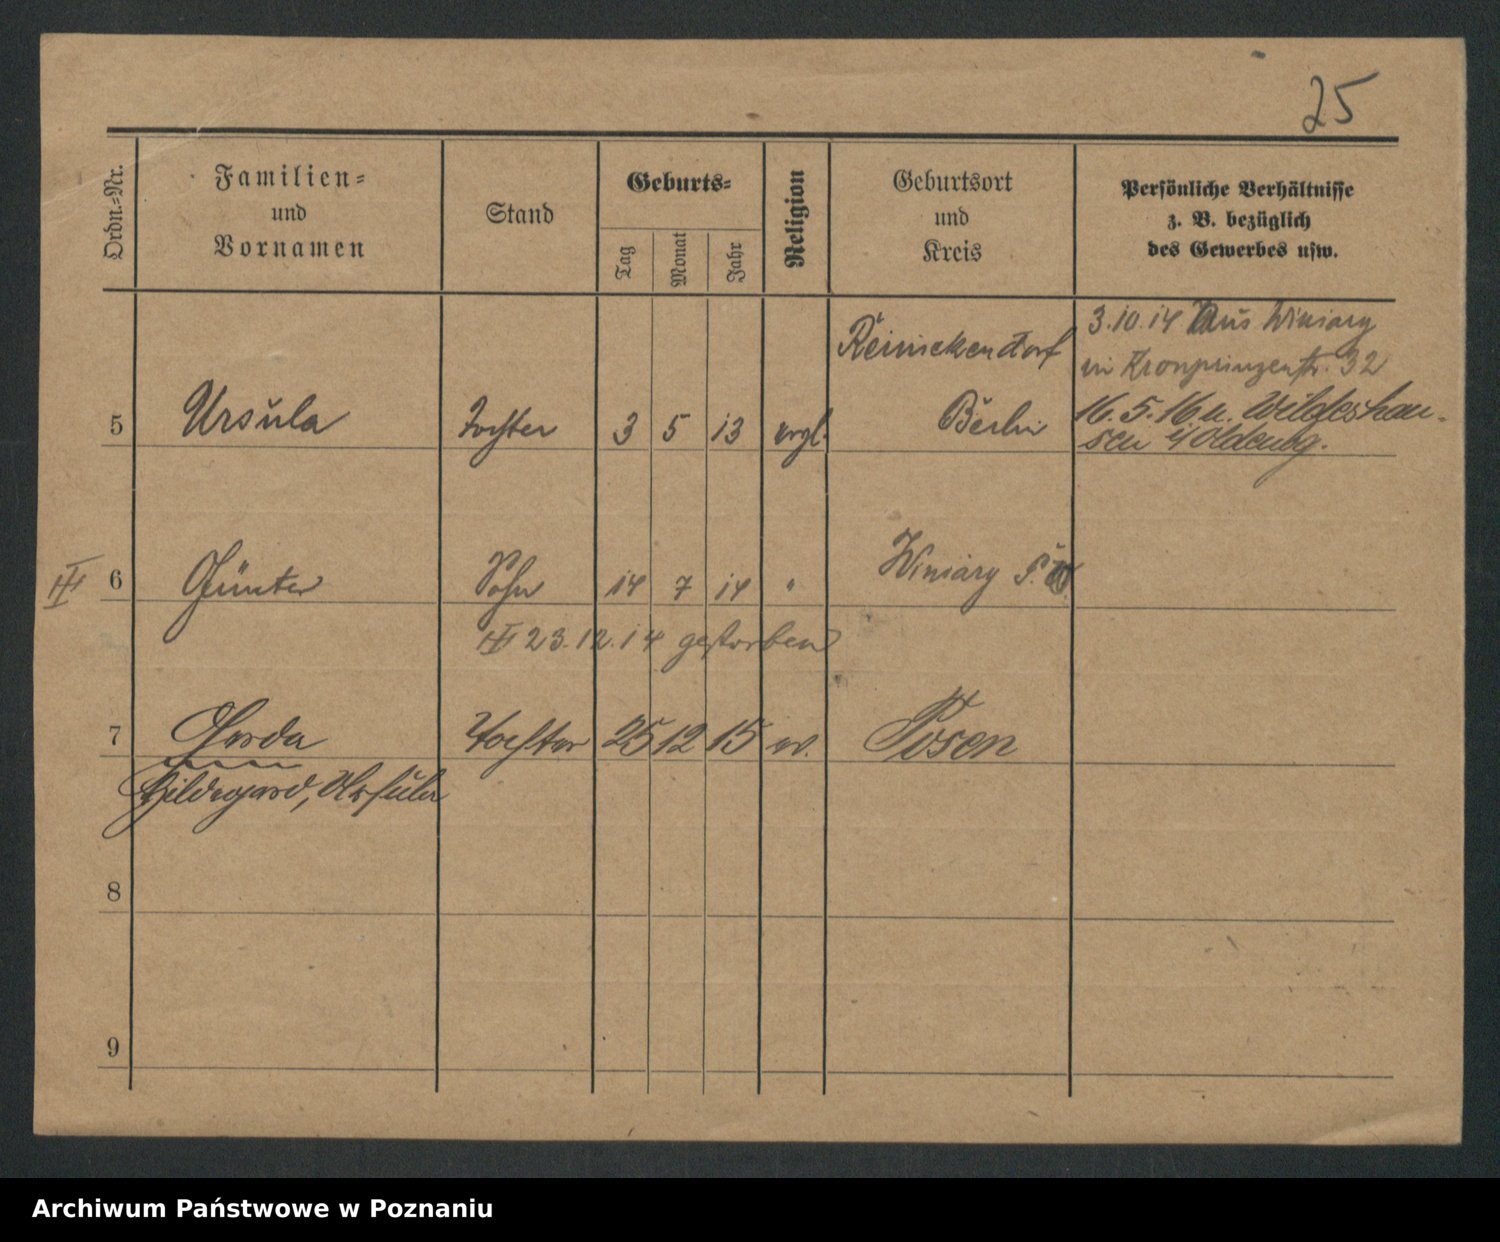 25
Ordn.-Nr.
Familien-
und
Vornamen
Stand
Geburts-
Tag
Monat
Jahr
Religion
Geburtsort
und
Kreis
Persönliche Verhältnisse
z. B. bezüglich
des Gewerbes usw.
3.10.14 Aus Winiary
in Kronprinzenstr. 32
16.5.16 n. Wildeshau-
sen i/Oldenbg.
5 Ursula Tochter 3 5 13 evgl. Reinickendorf
Berlin
6 Günter Sohn 14 7 14 " Winiary
23.12.14 gestorben
7 Gerda Tochter 25 12 15 ev. Posen
Hildegard, Ursula
8
9
Archiwum Państwowe w Poznaniu